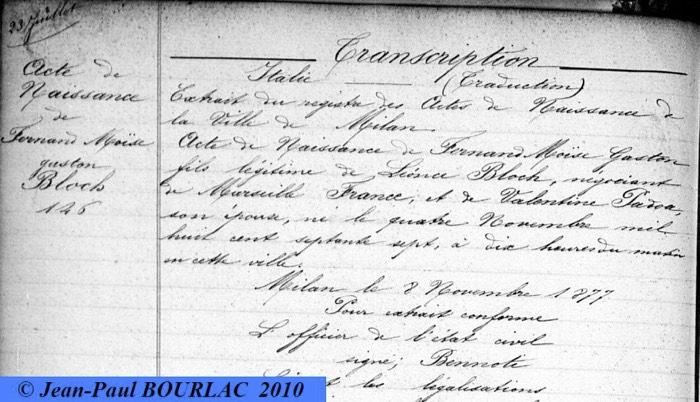 23 Juillet
Acte de
Naissance
de
Fernand Moïse
gaston
Bloch
146
Transcription
Italie (Traduction)
Extrait du registre des Actes de Naissance de
la Ville de Milan
Acte de Naissance de Fernand Moïse Gaston
fils légitime de Léonce Bloch, négociant
de Marseille France, et de Valentine Padoa,
son épouse, né le quatre Novembre mil
huit cent septante sept, à dix heures du matin
en cette ville.
Milan le 8 Novembre 1877
Pour extrait conforme
L'officier de l'état civil
signé; Bennoti
les légalisations
© Jean-Paul BOURLAC 2010